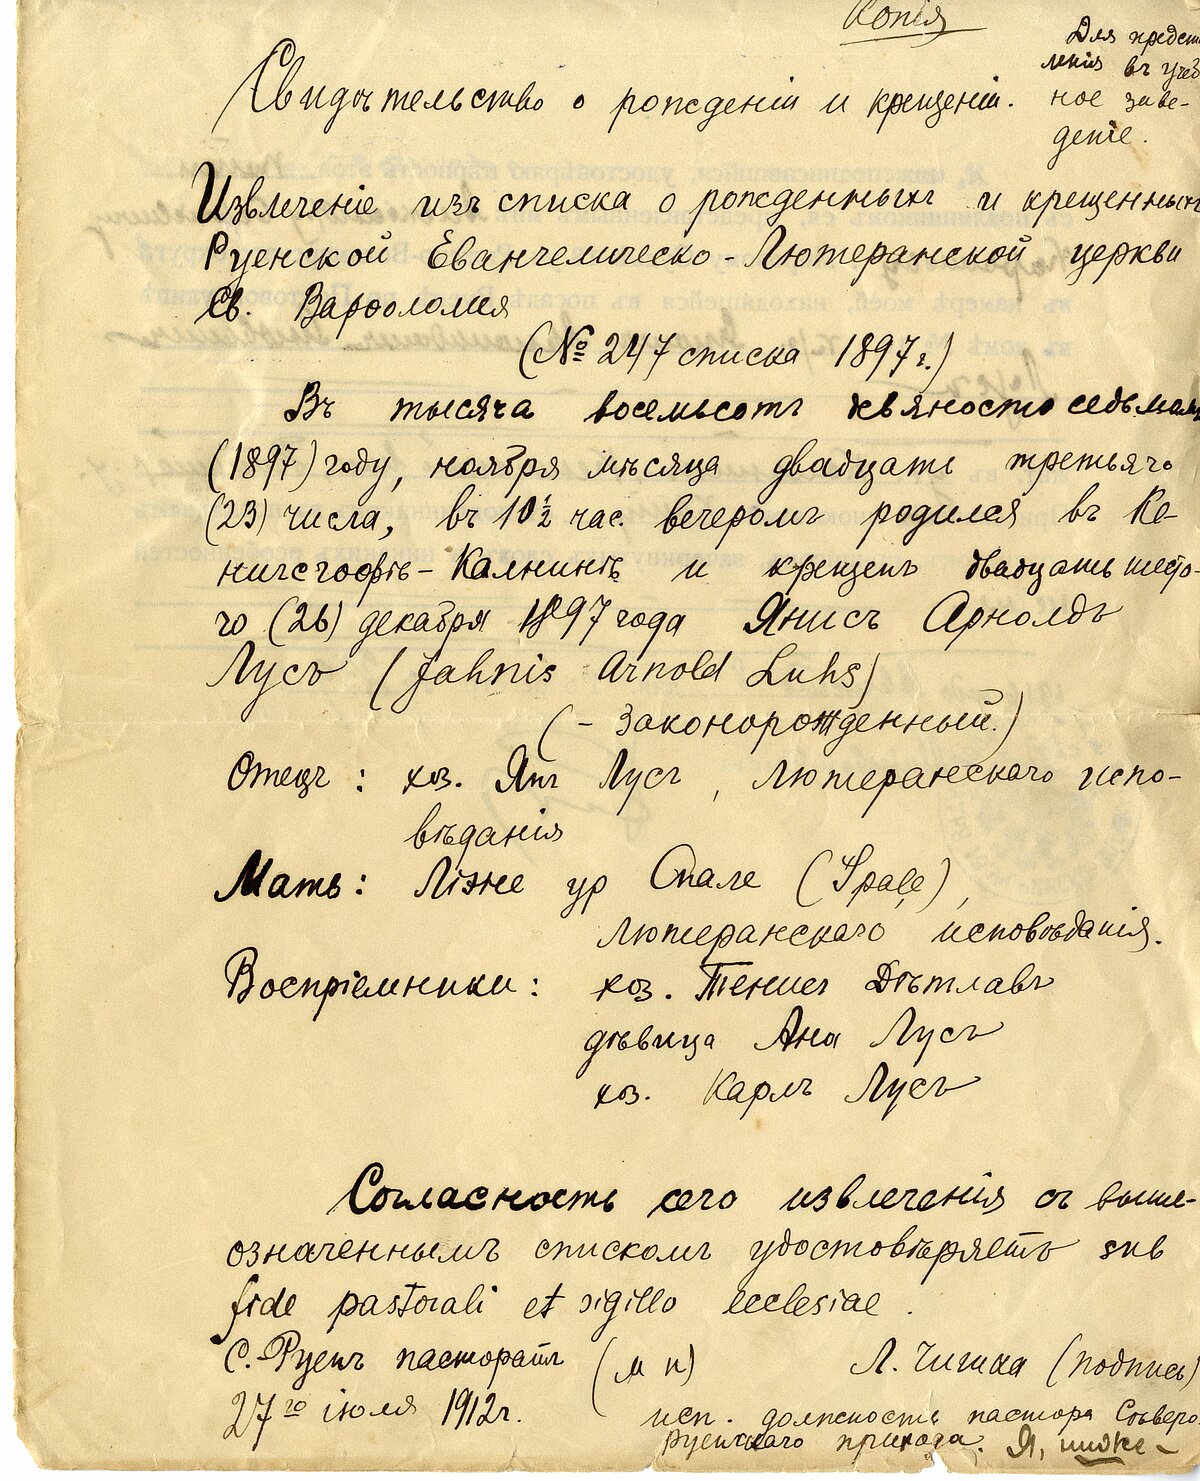 Копія
Для предст
ленія въ учеб
ное заве-
деніе.
Свидѣтельство о рожденіи и крещеніи.
Извлеченіе изъ списка о рожденныхъ и крещенныхъ
Руенской Евангелическо-Лютеранской церкви
Св. Варѳоломея
(№ 247 списка 1897 г.)
Въ тысяча восемьсотъ девяносто седьмомъ
(1897) году, ноября мѣсяца двадцать третьяго
(23) числа, въ 10½ час. вечеромъ родился въ Ке-
нигсгофѣ-Калнинѣ и крещенъ двадцать шесто-
го (26) декабря 1897 года Янисъ Арнолдъ
Лусъ (Jahnis Arnold Luhs)
(- законорожденный.)
Отецъ: хоз. Янъ Лусъ, лютеранскаго испо-
вѣданія
Мать: Лізне ур Спале (Spaļe),
лютеранскаго исповѣданія.
Воспріемники: хоз. Тенисъ Дѣтлавъ
дѣвица Анна Лусъ
хоз. Карлъ Лусъ
Согласность сего извлеченія съ выше-
означеннымъ спискомъ удостовѣряетъ sub
fide pastorali et sigillo ecclesiae.
С.-Руенъ пасторатъ (м п) Л. Чишка (подпись)
27го іюля 1912 г.
исп. должность пастора Сѣверо
Руенскаго прихода. Я, ниже-